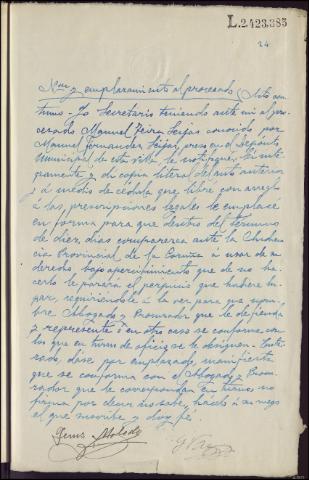 L.2423.385
24
Non y emplazamiento al procesado (Acto con
tinuo - Yo Secretario teniendo ante mi al pro
cesado Manuel Neira Seijas conocido por
Manuel Fernandez Seijas, preso en el Deposito
municipal de esta villa, le notifiqué lei inte
gramente y di copia literal del auto anterior
y á medio de cédula que libre con arreglo
á las prescripciones legales le emplacé
en forma para que dentro del termino
de diez dias comparezca ante la Audien
cia Provincial de la Coruña á usar de su
derecho bajo apercibimiento que de no ha
cerlo le parará el perjuicio que hubiere lu
gar, requiriéndole á la vez para que nom
bre Abogado y Procurador que le defienda
y represente ó en otro caso se conforme con
los que en turno de oficio se le designen - Ente
rado, dase por emplazado, manifiesta
que se conforma con el Abogado y Procu
rador que le correspondan en turno, no
firma por decir no sabe, hácelo á su ruego
el que suscribe y doy fé.
Jesus